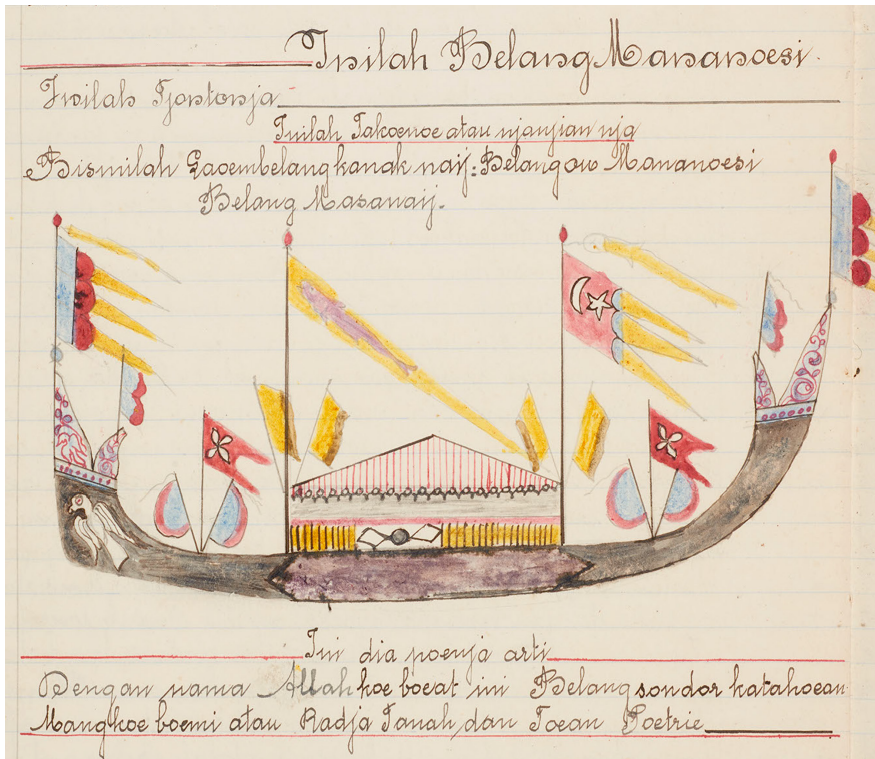 Inilah Belang Mananoesi.
Inilah Tjontonja
Inilah Takoenoe atau njanjian nja
Bismilah Gaoembelang kanak naij: Belang ow Mananoesi
Belang Masanaij.
Ini dia poenja arti
Dengan nama Allah koe boeat ini Belang sondor katahoean
Mangkoe boemi atau Radja Tanah, dan Toean Poetrie